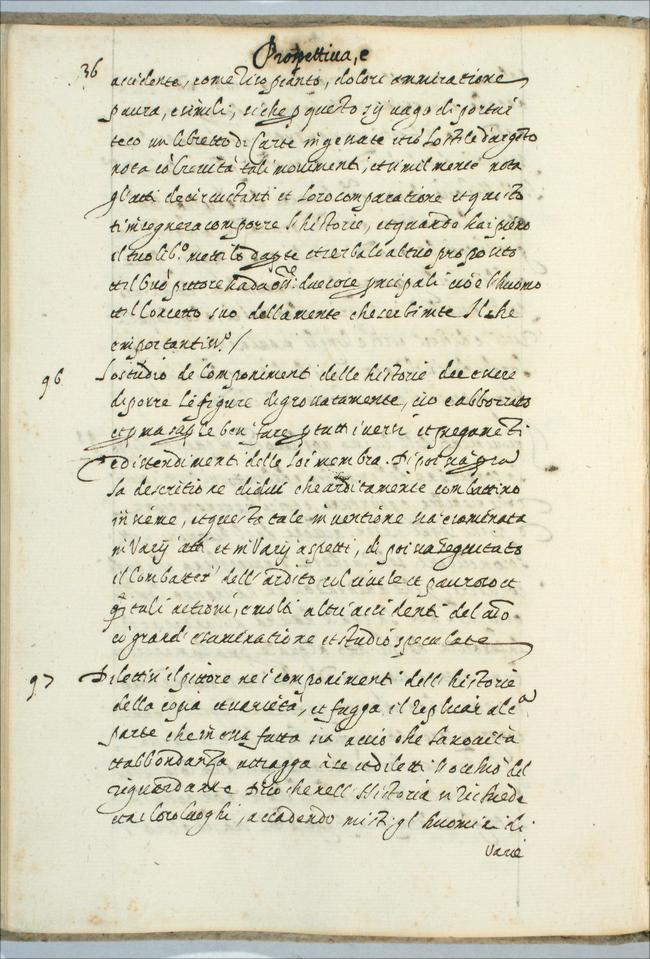 36
Prospettiva, e
accidente, come riso pianto, dolore ammiratione
paura, e simili, si che p questo sij vago di portar
teco un libretto di Carte ingessate et cō lo stile d'argēto
nota cō brevità tali movimenti, et similmente nota
gl'atti de circustanti et loro comparatione et questo
t'insegnera comporre l'historie, et quando hai pieno
il tuo lib.º mettilo da pte et serbalo al tuo proposito
et il buō pittore ha da due cose prncipali cioè l'huomo
et il Concetto suo della mente che serbirate Il che
è importantiss.º /
96 Lo studio de Componimenti delle historie dee essere
di porre le figure digrossatamente, cio è abbozzate
et pma saple ben fare p tutti i versi et piegamēti
e distendimenti delle loi membra. Di poi sia psa
la descritione di dui che arditamente combattino
insieme, et questa tale inventione sia esaminata
in varij atti et in Varij aspetti, di poi sia seguitato
il Combatter dell'ardito col vile et pauroso et
q̄ tali actioni, e molti altri accidenti del aīo
cō grande esaminatione et studio speculate
97 Diletti si il pittore ne i componimenti dell'historie
della copia et varietà, et fugga il replicar alcª
parte che in essa fatta sia acciò che la novità
et abbondanza attragga à se et diletti l'occhio del
riguardante Dico che nell'Historia si richiede
et a i loro luoghi, accadendo misti gl'huomini di
varie